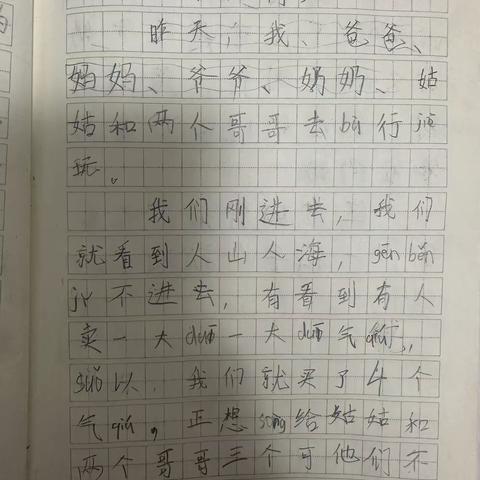 昨天,我、爸爸、
妈妈、爷爷、奶奶、姑
姑和两个哥哥去bù行jiē
玩。
我们刚进去,我们
就看到人山人海,gēn běn
jiù不进去,有看到有人
卖一大duō一大duō气qiú,
suǒ以,我们就买了4个
气qiú。正想sòng给姑姑和
两个哥哥三个可他们不